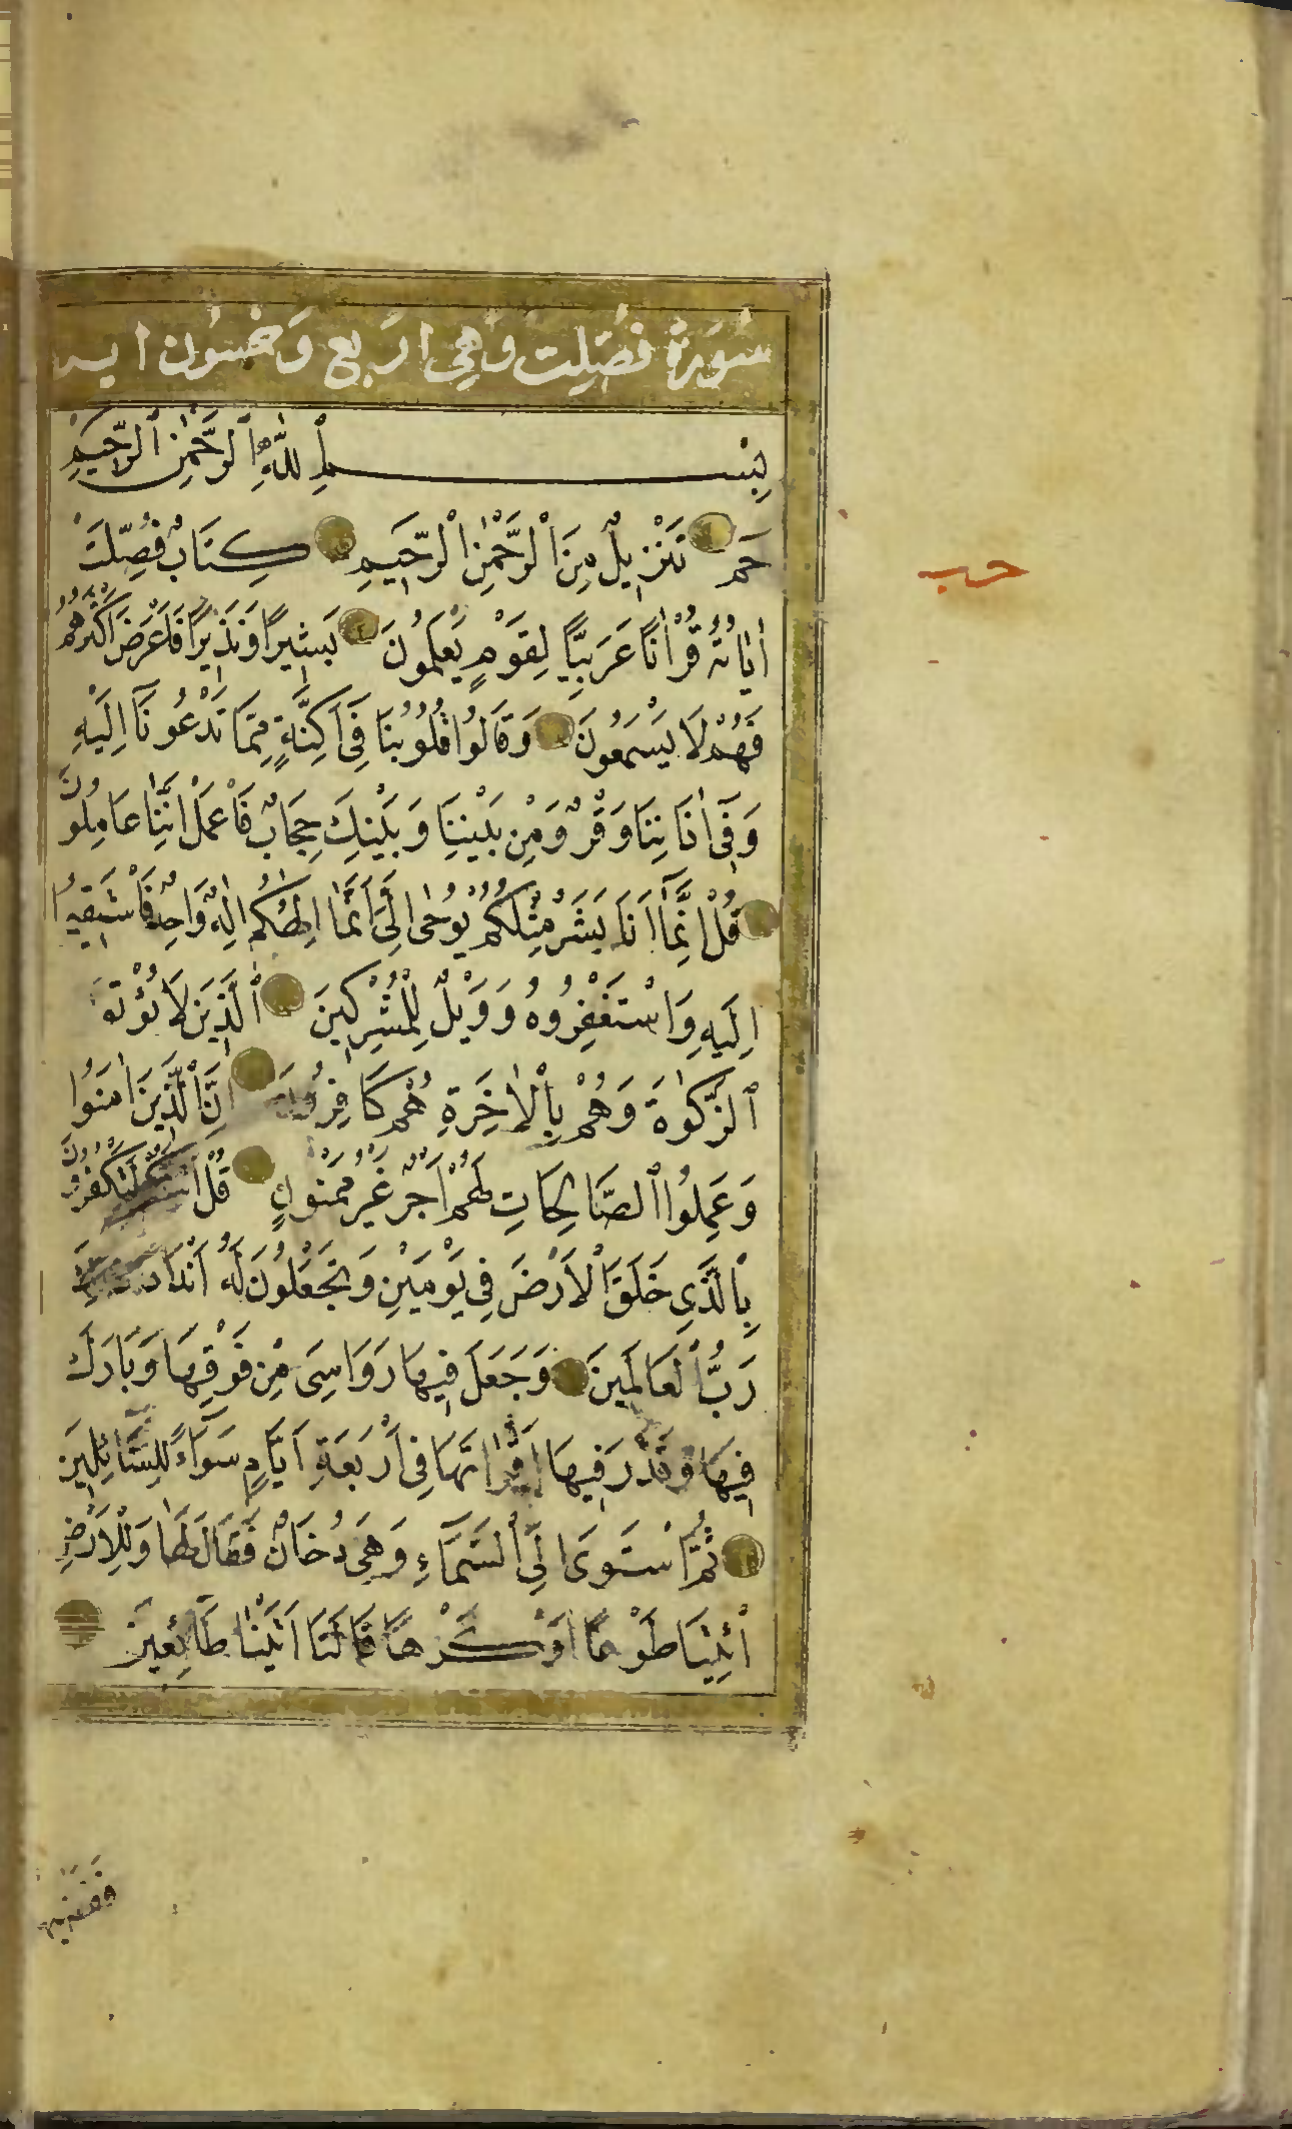 سُورَةُ فُصِّلَت وَهِيَ ارَبَع وَخمسُون ايه
بِسْمِ اللّٰهِ الرَّحْمٰنِ الرَّحِيمِ
حٰم تَنْزِيلٌ مِنَ الرَّحْمٰنِ الرَّحِيمِ كِتَابٌ فُصِّلَتْ
اٰيَاتُهُ قُرْاٰنًا عَرَبِيًّا لِقَوْمٍ يَعْلَمُونَ بَشِيرًا وَنَذِيرًا فَاَعْرَضَ اَكْثَرُهُمْ
فَهُمْ لَا يَسْمَعُونَ وَقَالُوا قُلُوبُنَا فِي اَكِنَّةٍ مِمَّا تَدْعُونَا اِلَيْهِ
وَفِي اٰذَانِنَا وَقْرٌ وَمِنْ بَيْنِنَا وَبَيْنِكَ حِجَابٌ فَاعْمَلْ اِنَّنَا عَامِلُونَ
قُلْ اِنَّمَا اَنَا بَشَرٌ مِثْلُكُمْ يُوحٰى اِلَيَّ اَنَّمَا اِلٰهُكُمْ اِلٰهٌ وَاحِدٌ فَاسْتَقِيمُوا
اِلَيْهِ وَاسْتَغْفِرُوهُ وَوَيْلٌ لِلْمُشْرِكِينَ اَلَّذِينَ لَا يُؤْتُونَ
الزَّكٰوةَ وَهُمْ بِالْاٰخِرَةِ هُمْ كَافِرُونَ اِنَّ الَّذِينَ اٰمَنُوا
وَعَمِلُوا الصَّالِحَاتِ لَهُمْ اَجْرٌ غَيْرُ مَمْنُونٍ قُلْ اَئِنَّكُمْ لَتَكْفُرُونَ
بِالَّذِي خَلَقَ الْاَرْضَ فِي يَوْمَيْنِ وَتَجْعَلُونَ لَهُ اَنْدَادًا ذٰلِكَ
رَبُّ الْعَالَمِينَ وَجَعَلَ فِيهَا رَوَاسِيَ مِنْ فَوْقِهَا وَبَارَكَ
فِيهَا وَقَدَّرَ فِيهَا اَقْوَاتَهَا فِي اَرْبَعَةِ اَيَّامٍ سَوَآءً لِلسَّآئِلِينَ
ثُمَّ اسْتَوٰى اِلَى السَّمَآءِ وَهِيَ دُخَانٌ فَقَالَ لَهَا وَلِلْاَرْضِ
ائْتِيَا طَوْعًا اَوْ كَرْهًا قَالَتَا اَتَيْنَا طَآئِعِينَ
حزب
فقضيهن